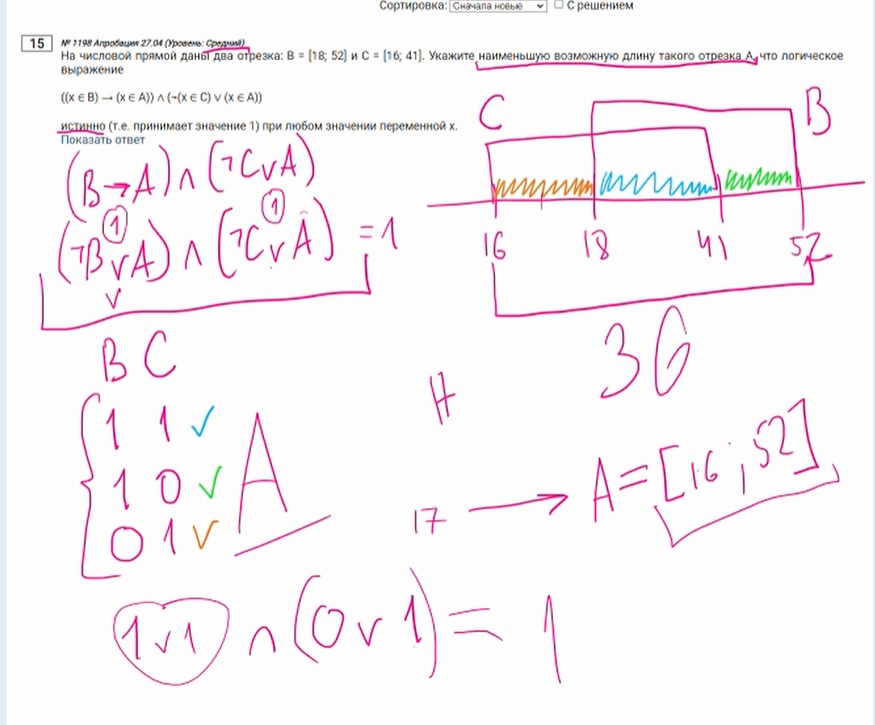 Сортировка: Сначала новые С решением
15 № 1198 Апробация 27.04 (Уровень: Средний)
На числовой прямой даны два отрезка: B = [18; 52] и C = [16; 41]. Укажите наименьшую возможную длину такого отрезка A, что логическое
выражение
((x ∈ B) → (x ∈ A)) ∧ (¬(x ∈ C) ∨ (x ∈ A))
истинно (т.е. принимает значение 1) при любом значении переменной x.
Показать ответ
C B
(B→A)∧(¬C∨A)
1 1
(¬B∨A)∧(¬C∨A) = 1
16 18 41 52
B C
36
1 1
1 0 A
0 1
17 → A=[16;52]
1∨1 ∧ (0∨1) = 1